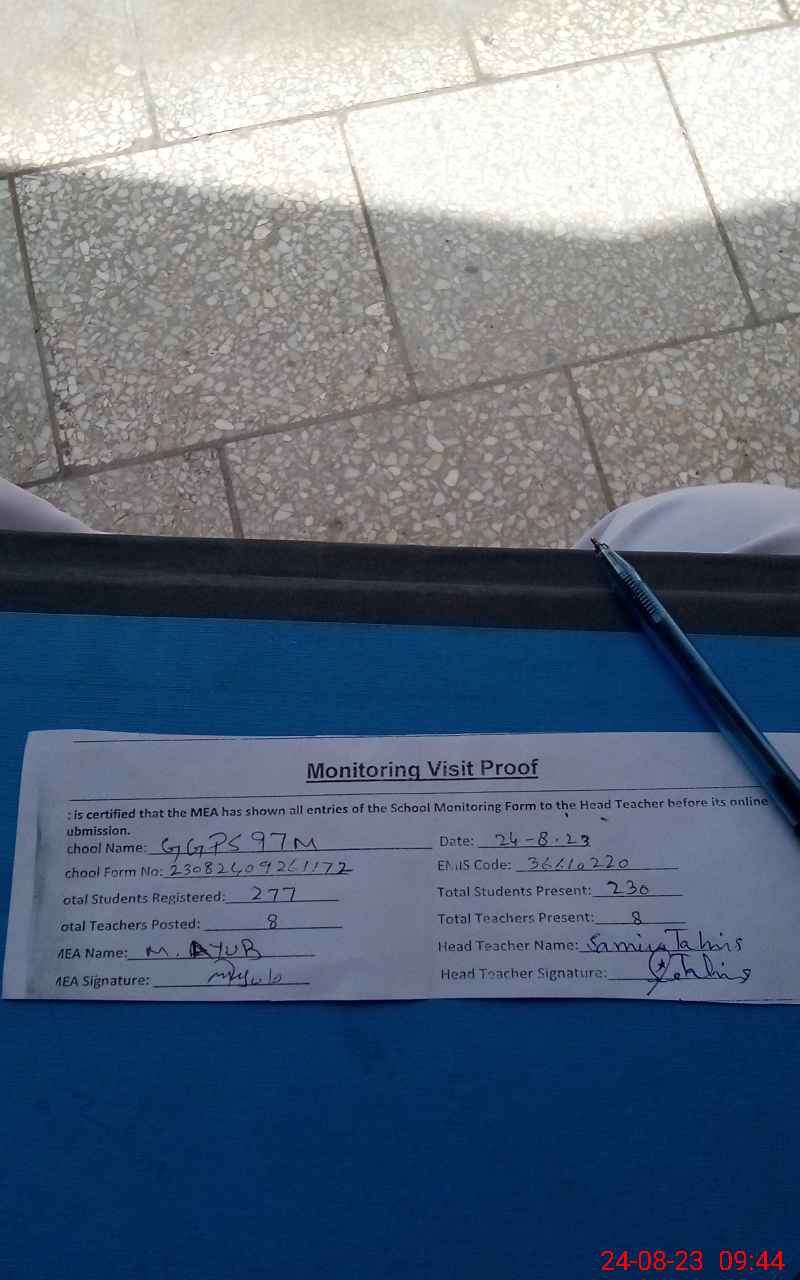 Monitoring Visit Proof
: is certified that the MEA has shown all entries of the School Monitoring Form to the Head Teacher before its online
ubmission.
chool Name: GGPS 97M Date: 24-8-23
chool Form No: EMIS Code:
otal Students Registered: 277 Total Students Present: 230
otal Teachers Posted: 8 Total Teachers Present: 8
MEA Name: M. AYUB Head Teacher Name: Samiya
MEA Signature: Head Teacher Signature:
24-08-23 09:44